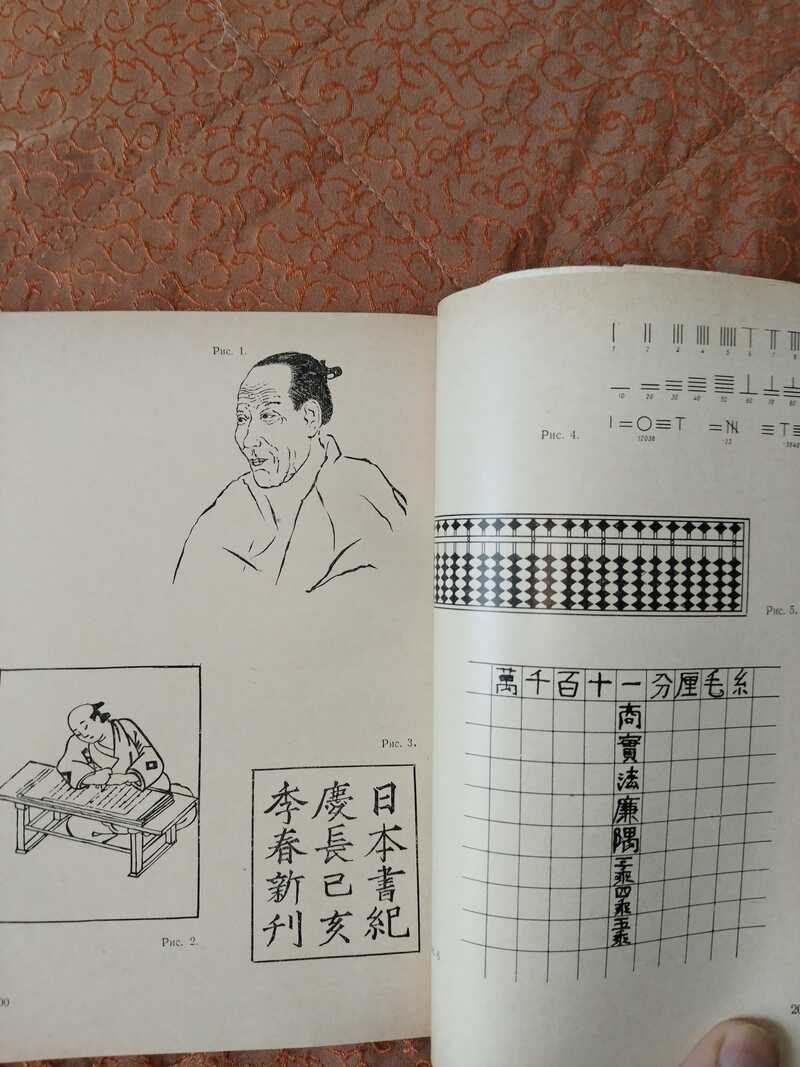 Рис. 1.
Рис. 2.
Рис. 3.
日本書紀
慶長己亥
季春新刊
00
1 2 3 4 5 6 7 8
10 20 30 40 50 60 70 80
Рис. 4.
12038 -23 -3840
Рис. 5.
萬 千 百 十 一 分 厘 毛 糸
商
實
法
廉
隅
三乘
四乘
五乘
20